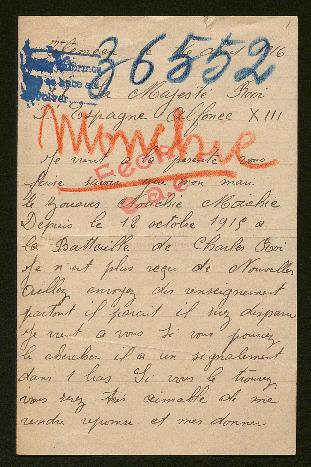 36552
Majesté Roi
Espagne Alfonce XIII
Monchie
Je vient a la presente vous
faire savoir mon mari
le zouaves Monchie
Depuis le 12 octobre 1915 a
la Battaille de Charles Roi
Je n'ait plus reçu de Nouvelles
envoyez des renseignement
partout il parait il disparu
Je vient a vous Si vous pourriez
le chercher il a un signalement
dans 1 bas Si vous le trouvez
vous serez très aimable de me
rendre reponse et mes donner